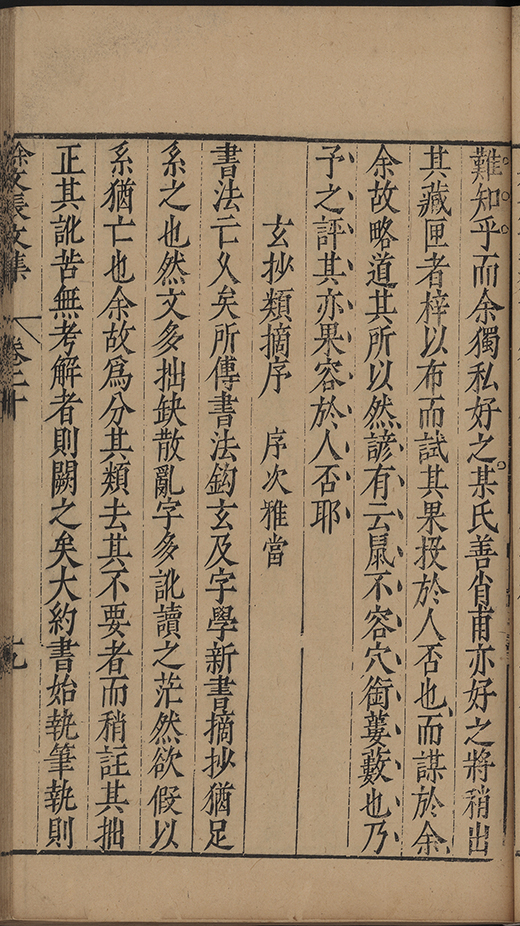 難知乎而余獨私好之某氏善肖甫亦好之將稍出
其藏匣者梓以布而試其果投於人否也而謀於余
余故略道其所以然諺有云鼠不容穴銜蔞藪也乃
予之評其亦果容於人否耶
玄抄類摘序 序次雅當
書法亡久矣所傳書法鈎玄及字學新書摘抄猶足
系之也然文多拙缺散亂字多訛讀之茫然欲假以
系猶亡也余故爲分其類去其不要者而稍註其拙
正其訛苦無考解者則闕之矣大約書始執筆執則
徐文長文集 卷二十 十九